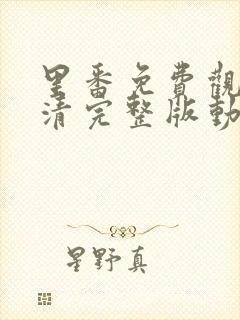 里番免費觀
清完整版動
星野真